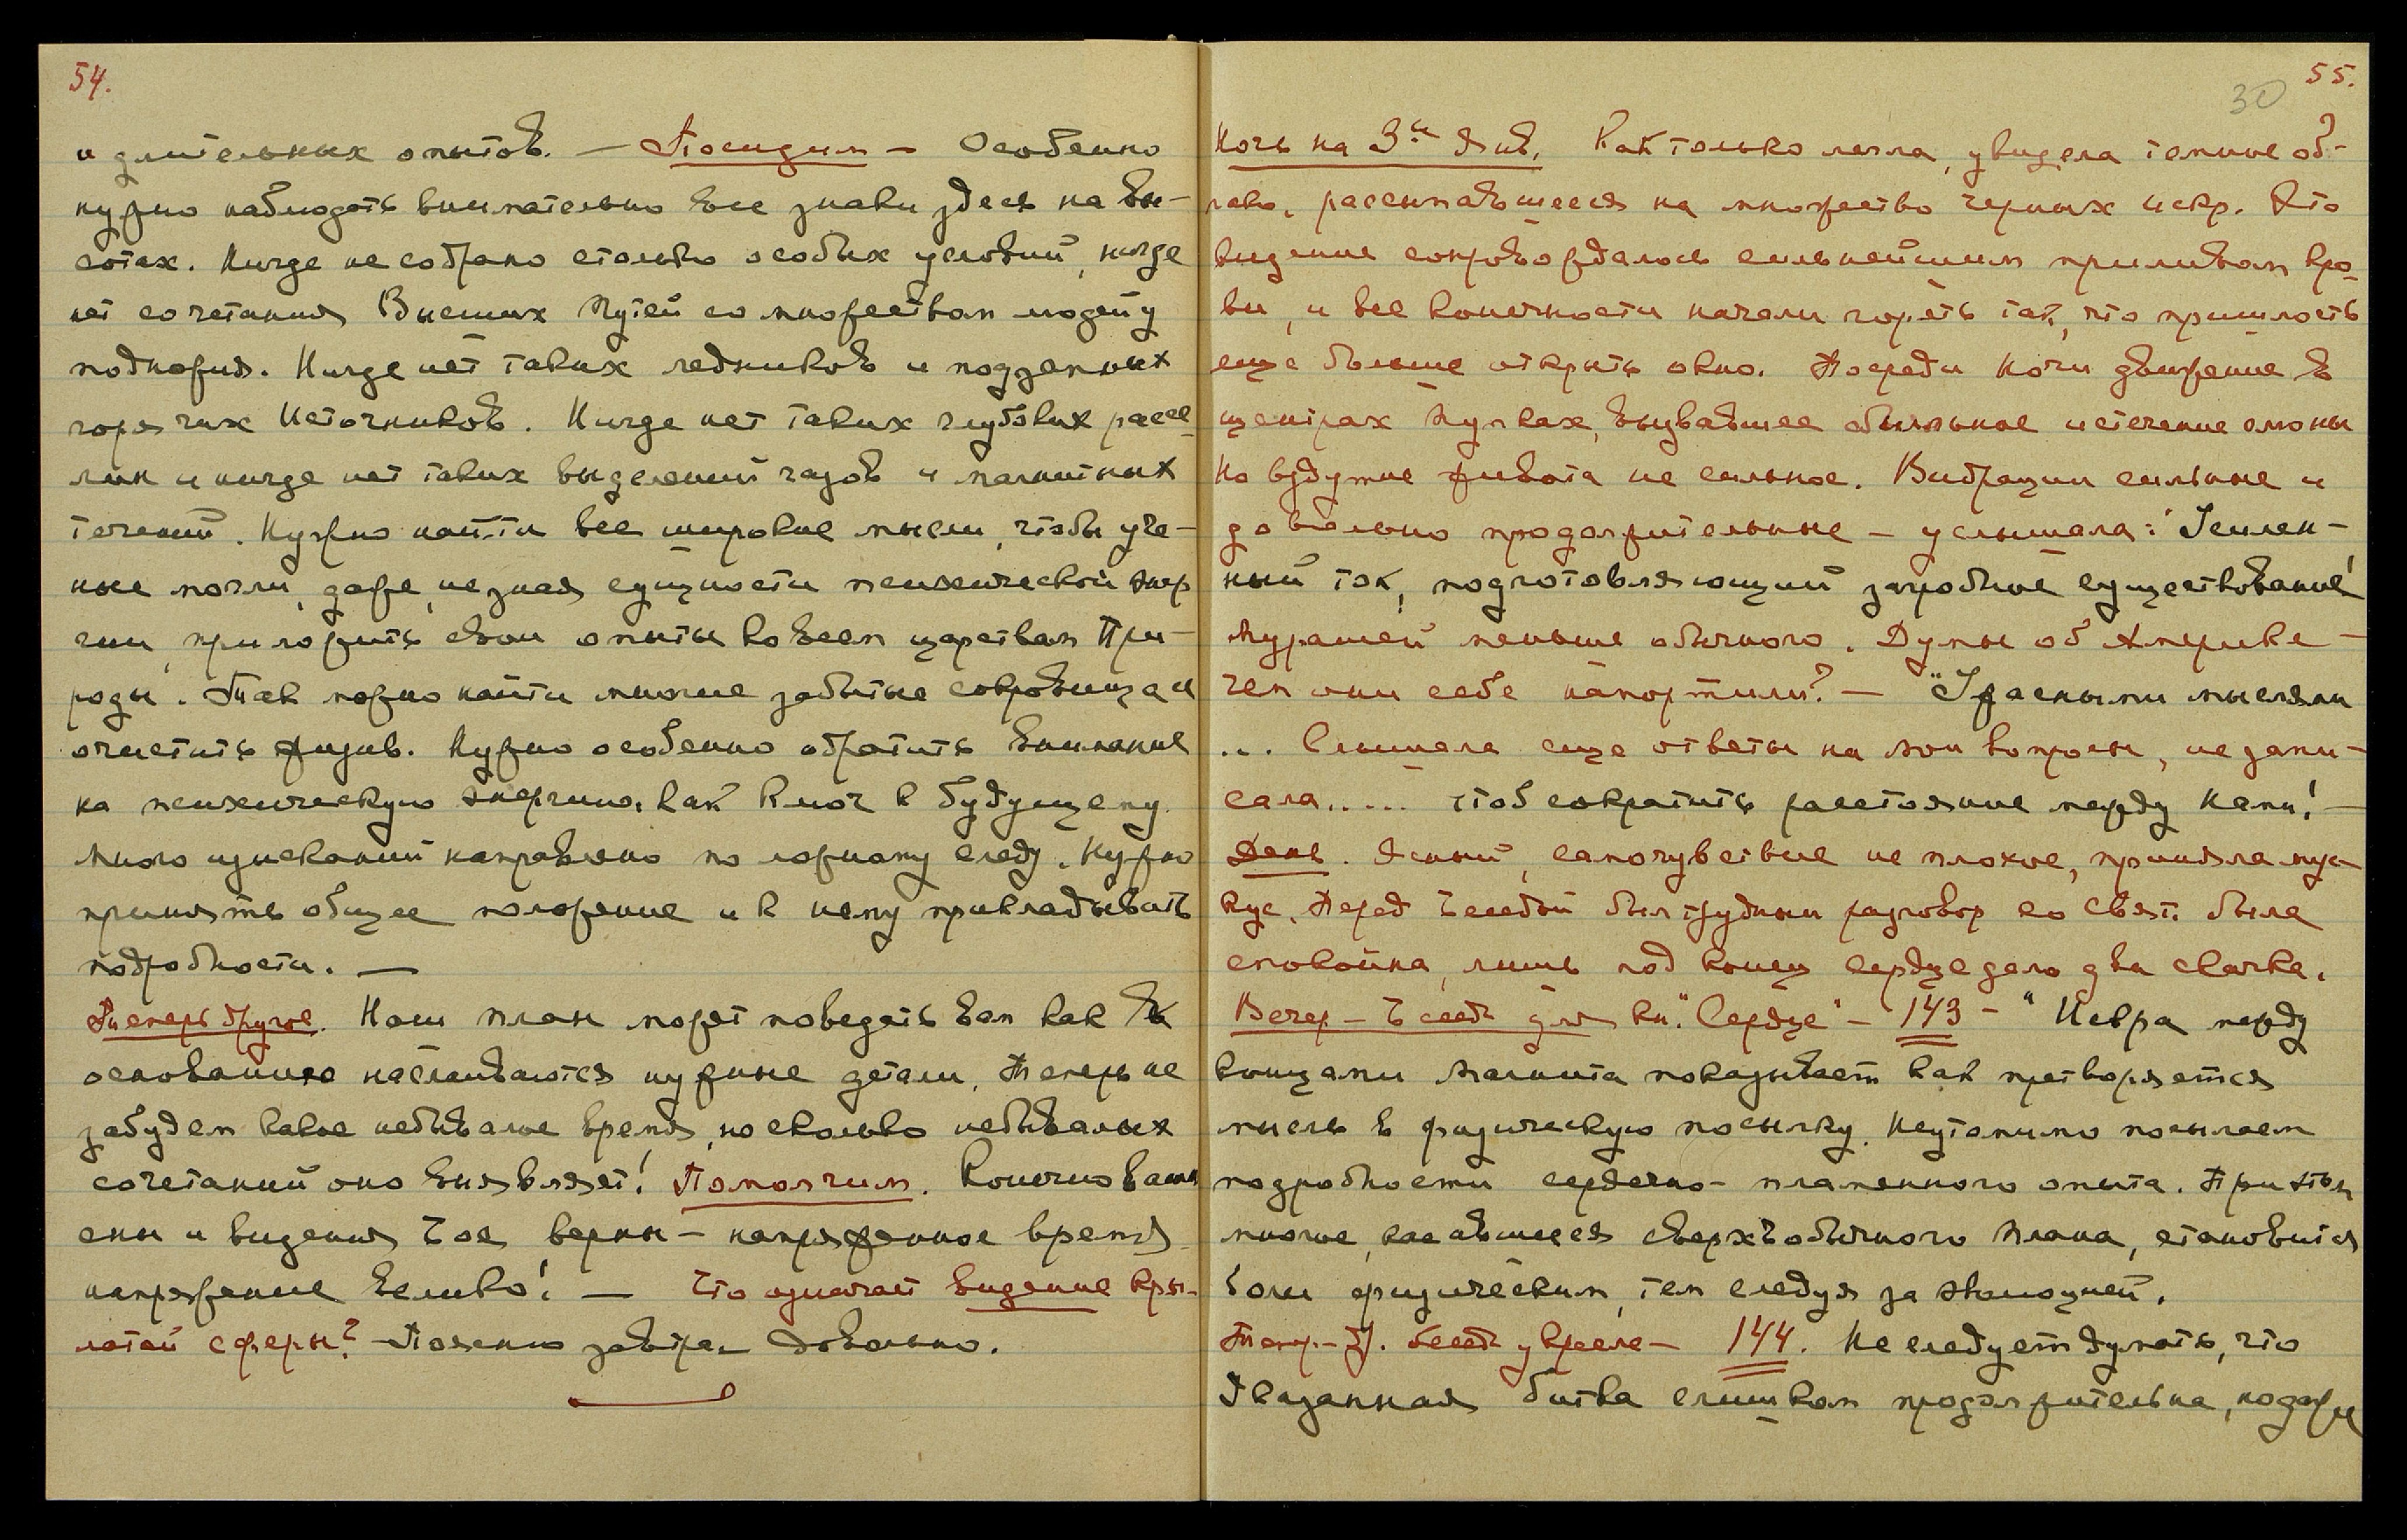 54.
и длительных опытов. — Посидим — Особенно
нужно наблюдать внимательно все знаки здесь на вы-
сотах. Нигде не собрано столько особых условий, нигде
нет сочетания Высших Путей со множеством людей у
подножия. Нигде нет таких ледников и подземных
горячих Источников. Нигде нет таких глубоких рассе-
лин и нигде нет таких выделений газов и магнитных
течений. Нужно найти все широкие мысли, чтобы уче-
ные могли, даже, не зная сущности психической энер
гии, приложить свои опыты ко всем царствам При-
роды. Так можно найти многие забытые сокровища и
очистить жизнь. Нужно особенно обратить внимание
на психическую энергию, как ключ к будущему.
Много изысканий направлено по ложному следу. Нужно
принять общее положение и к нему прикладывать
подробности. —
Теперь другое. Наш план может поведать вам как к
основанию наслаиваются нужные детали. Теперь не
забудем какое небывалое время, но сколько небывалых
сочетаний оно выявляет! Помолчим. Конечно ваши
сны и видения боя верны — напряженное время
напряжение велико! — Что означает видение кры-
латой сферы? — Поясню завтра — Довольно.
55.
30
Ночь на 3е Янв. Как только легла, увидела темное об-
лако, рассыпавшееся на множество черных искр. Это
видение сопровождалось сильнейшим приливом кро-
ви, и все конечности начали гореть так, что пришлось
еще больше открыть окно. Посреди ночи движение в
центрах Пупках, вызвавшее обильное истечение слюны
Но вздутие живота не сильное. Вибрации сильные и
довольно продолжительные — услышала: "Усилен-
ный ток, подготовляющий загробное существование"
Мурашей меньше обычного. Думы об Америке —
чем они себе напортили? — "Ужасными мыслями
... Слышала еще ответы на мои вопросы, не запи-
сала..... чтоб сократить расстояние между нами! —
День. Ясный, самочувствие не плохое, приняла мус-
кус. Перед Беседой был трудный разговор со Свят. была
спокойна, лишь под конец сердце дало два скачка.
Вечер — Бесед. для кн. "Сердце" — 143 — "Искра между
концами магнита показывает как претворяется
мысль в физическую посылку. Неутомимо посылаем
подробности сердечно-пламенного опыта. При этом
многое, касавшееся сверхъобычного плана, становится
более физическим, тем следуя за эволюцией.
Темп. — Т. бесед. у кресла — 144. Не следует думать, что
Указанная битва слишком продолжительна, но даже